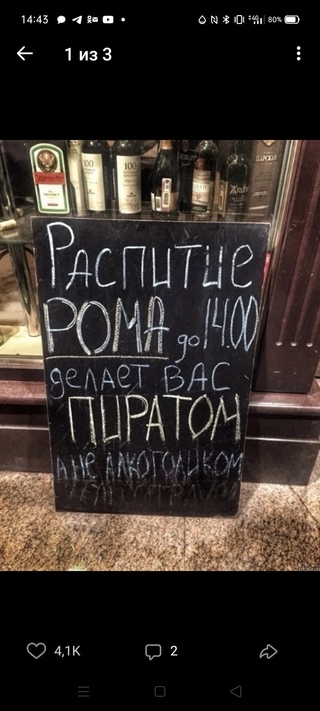 14:43
80%
1 из 3
100
100
ЦАРСКАЯ
РАСПИТИЕ
РОМА до 14.00
делАЕТ ВАС
ПИРАТОМ
А НЕ АЛКОГОЛИКОМ
4,1K
2